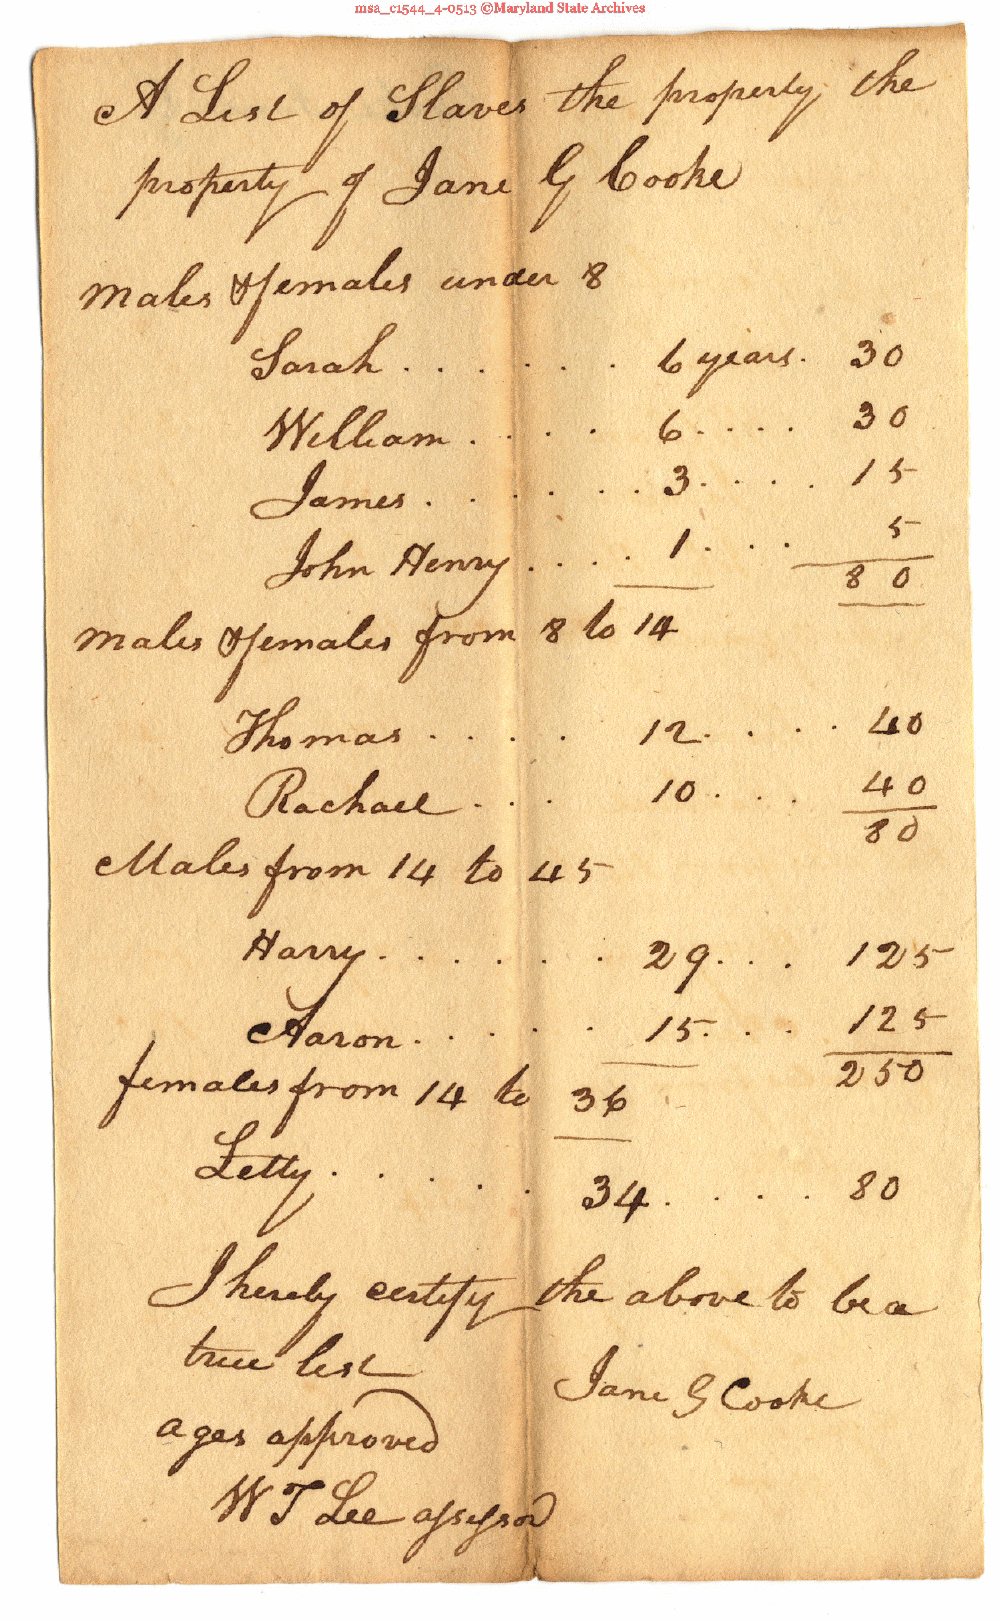 msa_c1544_4-0513 ©Maryland State Archives
A List of Slaves the property, the
property of Jane G Cooke
Males & females under 8
Sarah . . . . . . 6 years. 30
William . . . . 6 . . . . 30
James . . . . . . 3 . . . . 15
John Henry . . . . 1 . . . 5
80
Males & females from 8 to 14
Thomas . . . . 12 . . . . 40
Rachael . . . 10 . . . 40
80
Males from 14 to 45
Harry . . . . . . . 29 . . . 125
Aaron . . . . . 15 . . . 125
250
females from 14 to 36
Letty . . . . . 34 . . . . 80
I hereby certify the above to be a
true list
Jane G Cooke
ages approved
W T Lee assessor